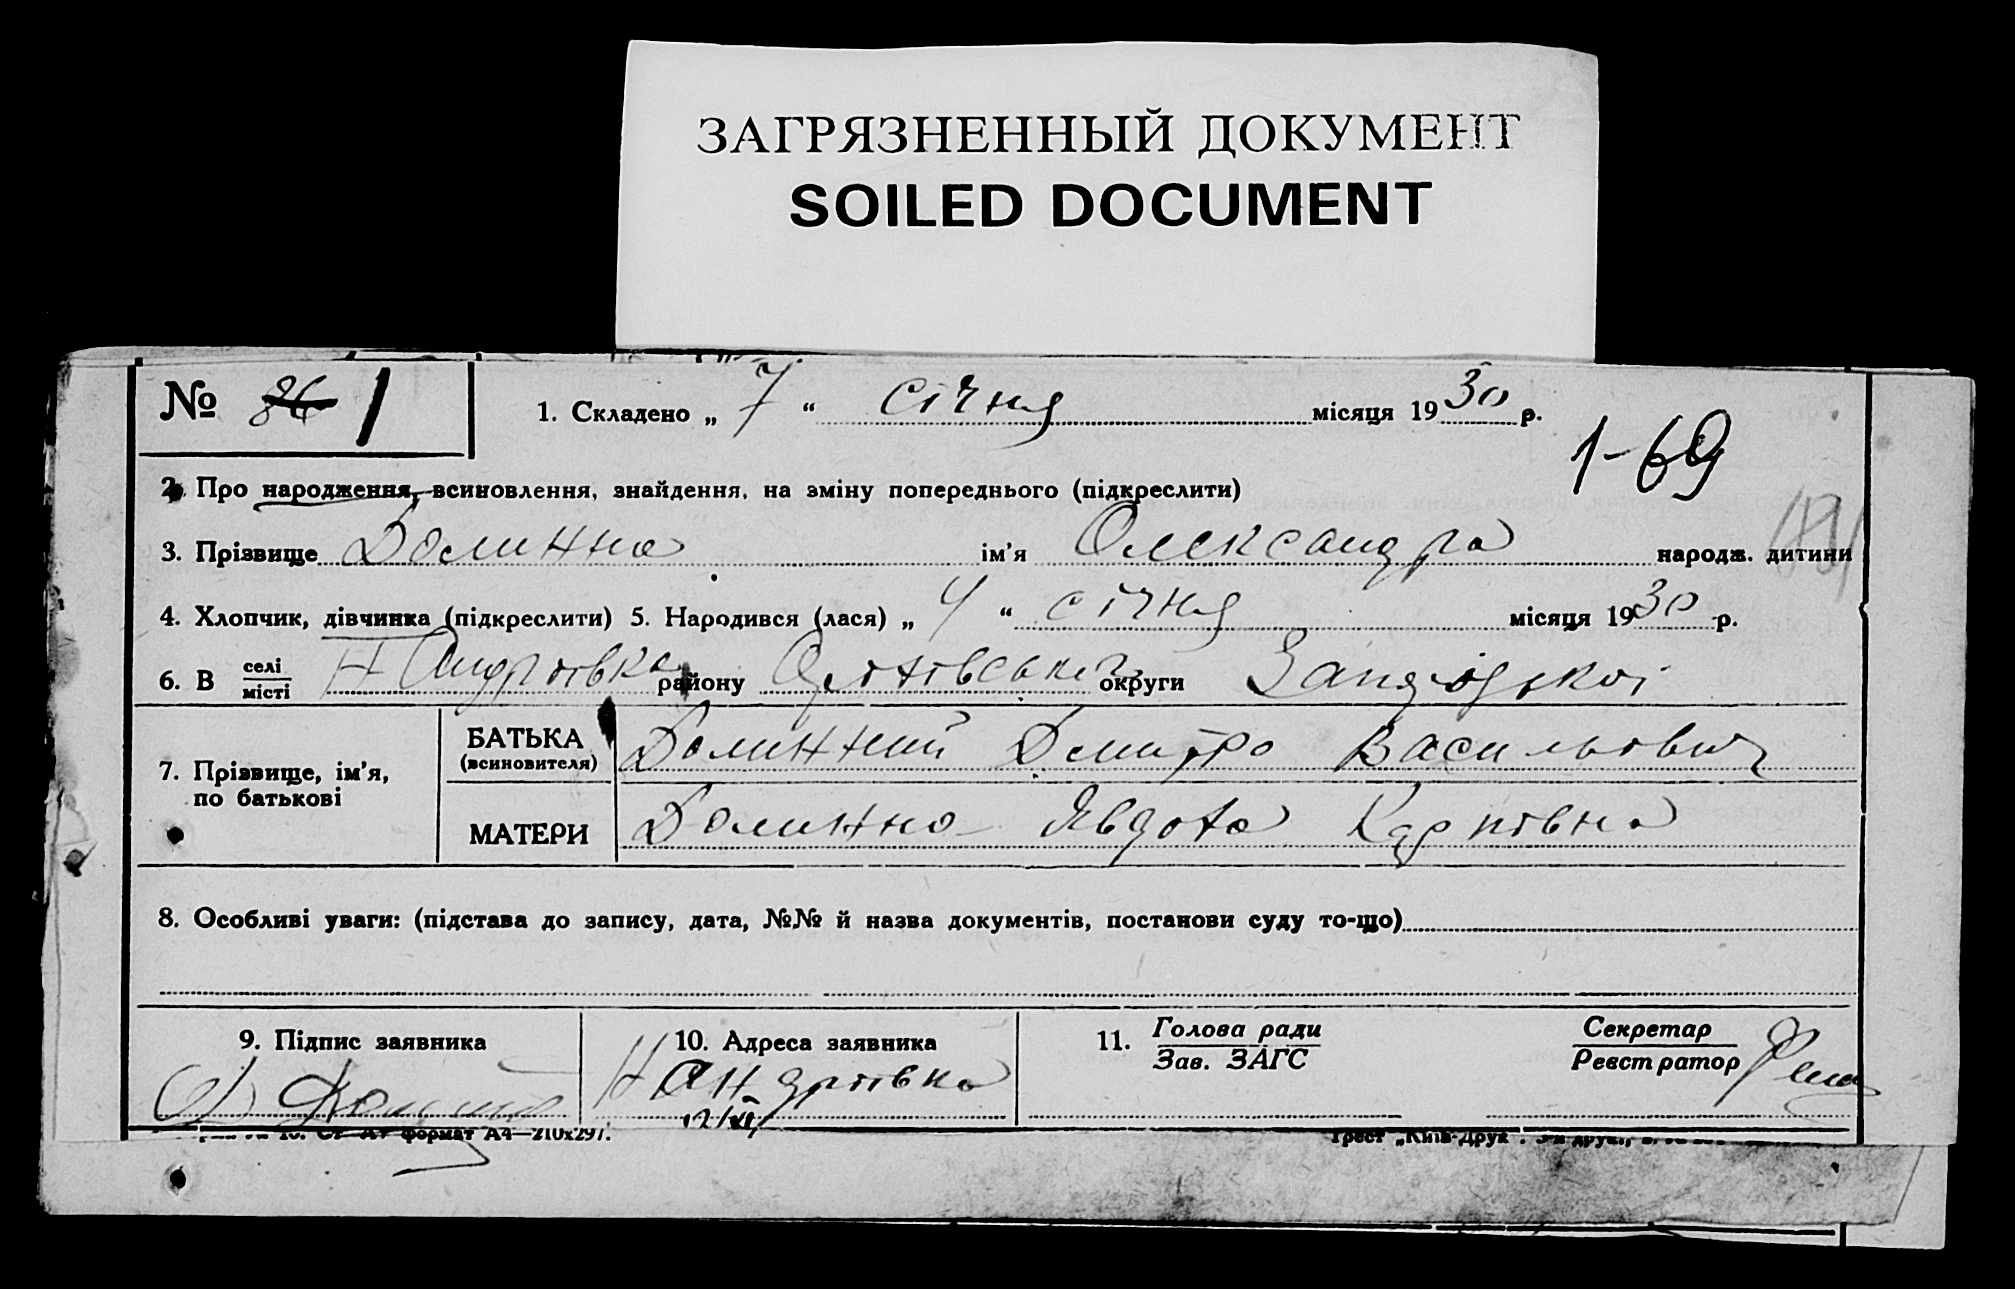 ЗАГРЯЗНЕННЫЙ ДОКУМЕНТ
SOILED DOCUMENT
№ 86 1
1. Складено „ 7 “ січня місяця 1930 р.
1-69
2. Про народження, всиновлення, знайдення, на зміну попереднього (підкреслити)
3. Прізвище Долинна ім’я Олександра народж. дитини
4. Хлопчик, дівчинка (підкреслити) 5. Народився (лася) „ 4 “ січня місяця 1930 р.
6. В селі/місті Н Андріївка району Оріхівський округи Запорізької
7. Прізвище, ім’я, по батькові
БАТЬКА (всиновителя) Долинний Дмитро Васильович
МАТЕРИ Долинна Явдоха Карпівна
8. Особливі уваги: (підстава до запису, дата, №№ й назва документів, постанови суду то-що)
9. Підпис заявника
10. Адреса заявника
Н Андріївка
11. Голова ради / Зав. ЗАГС
Секретар / Реєстратор
формат А4—210х297.
Трест „Київ-Друк“.